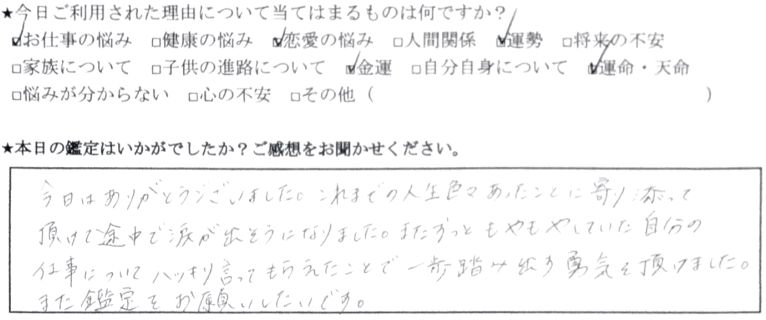 ★今日ご利用された理由について当てはまるものは何ですか？
☑お仕事の悩み □健康の悩み ☑恋愛の悩み □人間関係 ☑運勢 □将来の不安
□家族について □子供の進路について ☑金運 □自分自身について ☑運命・天命
□悩みが分からない □心の不安 □その他（ ）
★本日の鑑定はいかがでしたか？ご感想をお聞かせください。
今日はありがとうございました。これまでの人生色々あったことに寄り添って
頂けて途中で涙が出そうになりました。またずっともやもやしていた自分の
仕事についてハッキリ言ってもらえたことで一歩踏み出す勇気を頂けました。
また鑑定をお願いしたいです。